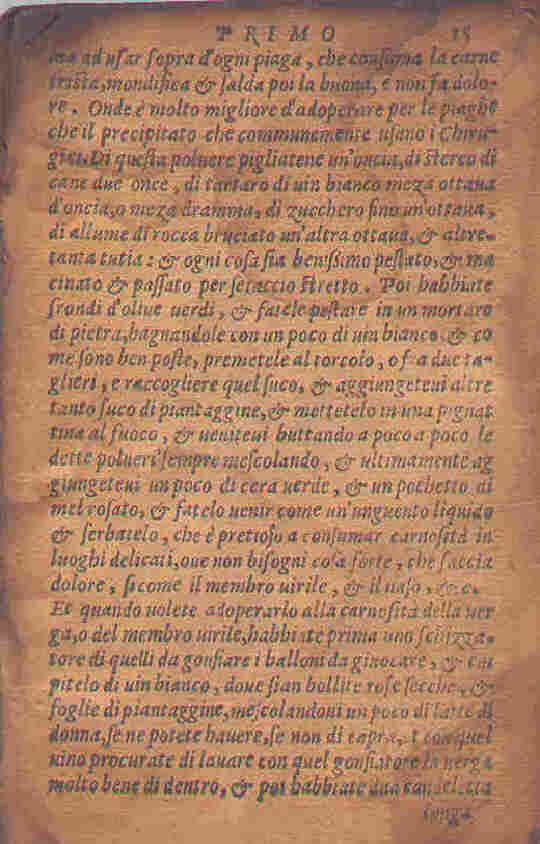 PRIMO 15
ma ad uſar ſopra d'ogni piaga, che conſuma la carne
triſta, mondifica & ſalda poi la buona, e non fa dolo-
re. Onde è molto migliore d'adoperare per le piaghe
che il precipitato che communemente uſano i Chirur-
gici. Di queſta poluere pigliatene un'oncia, di ſterco di
cane due once, di tartaro di uin bianco meza ottaua
d'oncia, o meza dramma, di zucchero fino un'ottaua,
di allume di rocca bruciato un'altra ottaua, & altre-
tanta tutia: & ogni coſa ſia beniſſimo peſtato, & ma
cinato & paſſato per ſetaccio ſtretto. Poi habbiate
frondi d'oliue uerdi, & fatele peſtare in un mortaro
di pietra, bagnandole con un poco di uin bianco. & co
me ſono ben peſte, premetele al torcolo, o fra due ta-
glieri, e raccogliere quel ſuco, & aggiungeteui altre
tanto ſuco di piantaggine, & mettetelo in una pignat
tina al fuoco, & ueniteui buttando a poco a poco le
dette polueri ſempre meſcolando, & ultimamente ag
giungeteui un poco di cera uerde, & un pochetto di
mel roſato, & fatelo uenir come un'unguento liquido
& ſerbatelo, che è pretioſo a conſumar carnoſità in
luoghi delicati, oue non biſogni coſa forte, che faccia
dolore, ſi come il membro uirile, & il naſo, &c.
Et quando uolete adoperarlo alla carnoſità della uer
ga, o del membro uirile, habbiate prima uno ſchizza-
tore di quelli da gonfiare i balloni da giuocare, & em
pitelo di uin bianco, doue ſian bollite roſe ſecche, &
foglie di piantaggine, meſcolandoui un poco di latte di
donna, ſe ne potete hauere, ſe non di capra, et con quel
uino procurate di lauare con quel gonfiatore la uerga
molto bene di dentro, & poi habbiate una candeletta
longa